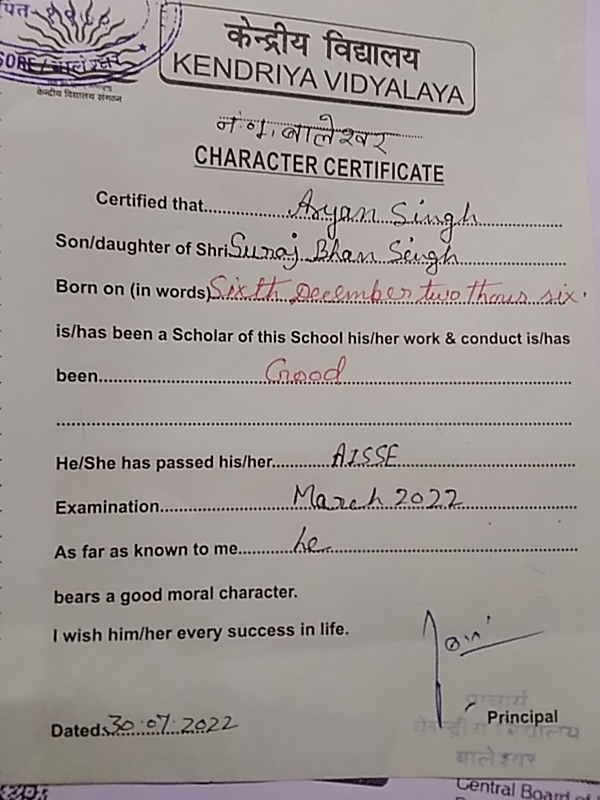 केन्द्रीय विद्यालय
KENDRIYA VIDYALAYA
केन्द्रीय विद्यालय संगठन
SORE/बालेश्वर
नं.१, बालेश्वर
CHARACTER CERTIFICATE
Certified that Aryan Singh
Son/daughter of Shri Suraj Bhan Singh
Born on (in words) Sixth December two thous six.
is/has been a Scholar of this School his/her work & conduct is/has
been Good
He/She has passed his/her AISSE
Examination March 2022
As far as known to me he
bears a good moral character.
I wish him/her every success in life.
प्राचार्य
Principal
केन्द्रीय विद्यालय
Dated: 30.07.2022
बालेश्वर
Central Board of